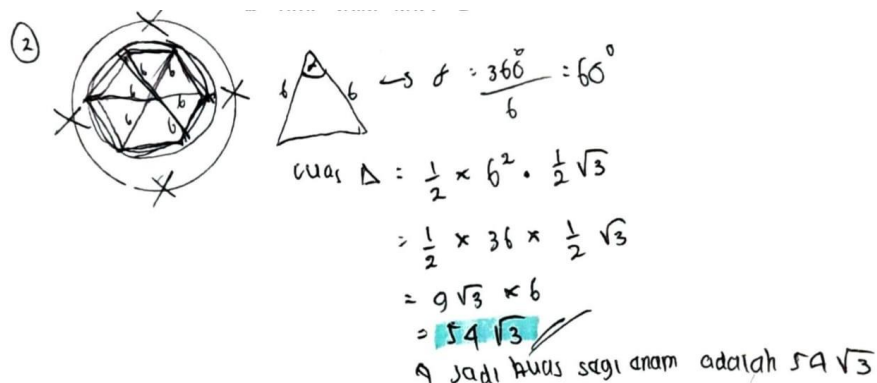 2
6 6
6 6
6 6
6 6 α ↪ γ : 360° / 6 = 60°
Luas Δ = 1/2 × 6² · 1/2 √3
= 1/2 × 36 × 1/2 √3
= 9√3 × 6
= 54 √3
Jadi luas segi enam adalah 54 √3